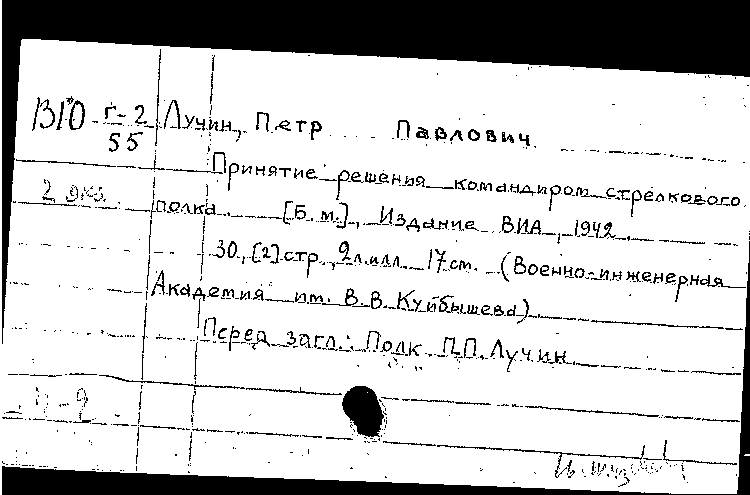 В10 г-2 Лучин, Петр Павлович
55
Принятие решения командиром стрелкового
2 экз. полка. [Б. м.], Издание ВИА, 1942.
30, [2] стр., 2 л. илл. 17 см. (Военно-инженерная
Академия им. В. В. Куйбышева).
Перед загл.: Полк. П.П. Лучин.